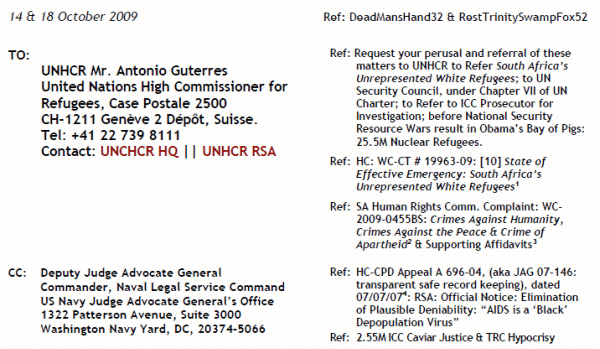 14 & 18 October 2009
Ref: DeadMansHand32 & RestTrinitySwampFox52
TO:
UNHCR Mr. Antonio Guterres
United Nations High Commissioner for
Refugees, Case Postale 2500
CH-1211 Genève 2 Dépôt, Suisse.
Tel: +41 22 739 8111
Contact: UNCHCR HQ || UNHCR RSA
Ref: Request your perusal and referral of these
matters to UNHCR to Refer South Africa's
Unrepresented White Refugees; to UN
Security Council, under Chapter VII of UN
Charter; to Refer to ICC Prosecutor for
Investigation; before National Security
Resource Wars result in Obama's Bay of Pigs:
25.5M Nuclear Refugees.
Ref: HC: WC-CT # 19963-09: [10] State of
Effective Emergency: South Africa's
Unrepresented White Refugees¹
Ref: SA Human Rights Comm. Complaint: WC-
2009-0455BS: Crimes Against Humanity,
Crimes Against the Peace & Crime of
Apartheid² & Supporting Affidavits³
CC: Deputy Judge Advocate General
Commander, Naval Legal Service Command
US Navy Judge Advocate General's Office
1322 Patterson Avenue, Suite 3000
Washington Navy Yard, DC, 20374-5066
Ref: HC-CPD Appeal A 696-04, (aka JAG 07-146:
transparent safe record keeping), dated
07/07/07⁴: RSA: Official Notice: Elimination
of Plausible Deniability: "AIDS is a 'Black'
Depopulation Virus"
Ref: 2.55M ICC Caviar Justice & TRC Hypocrisy